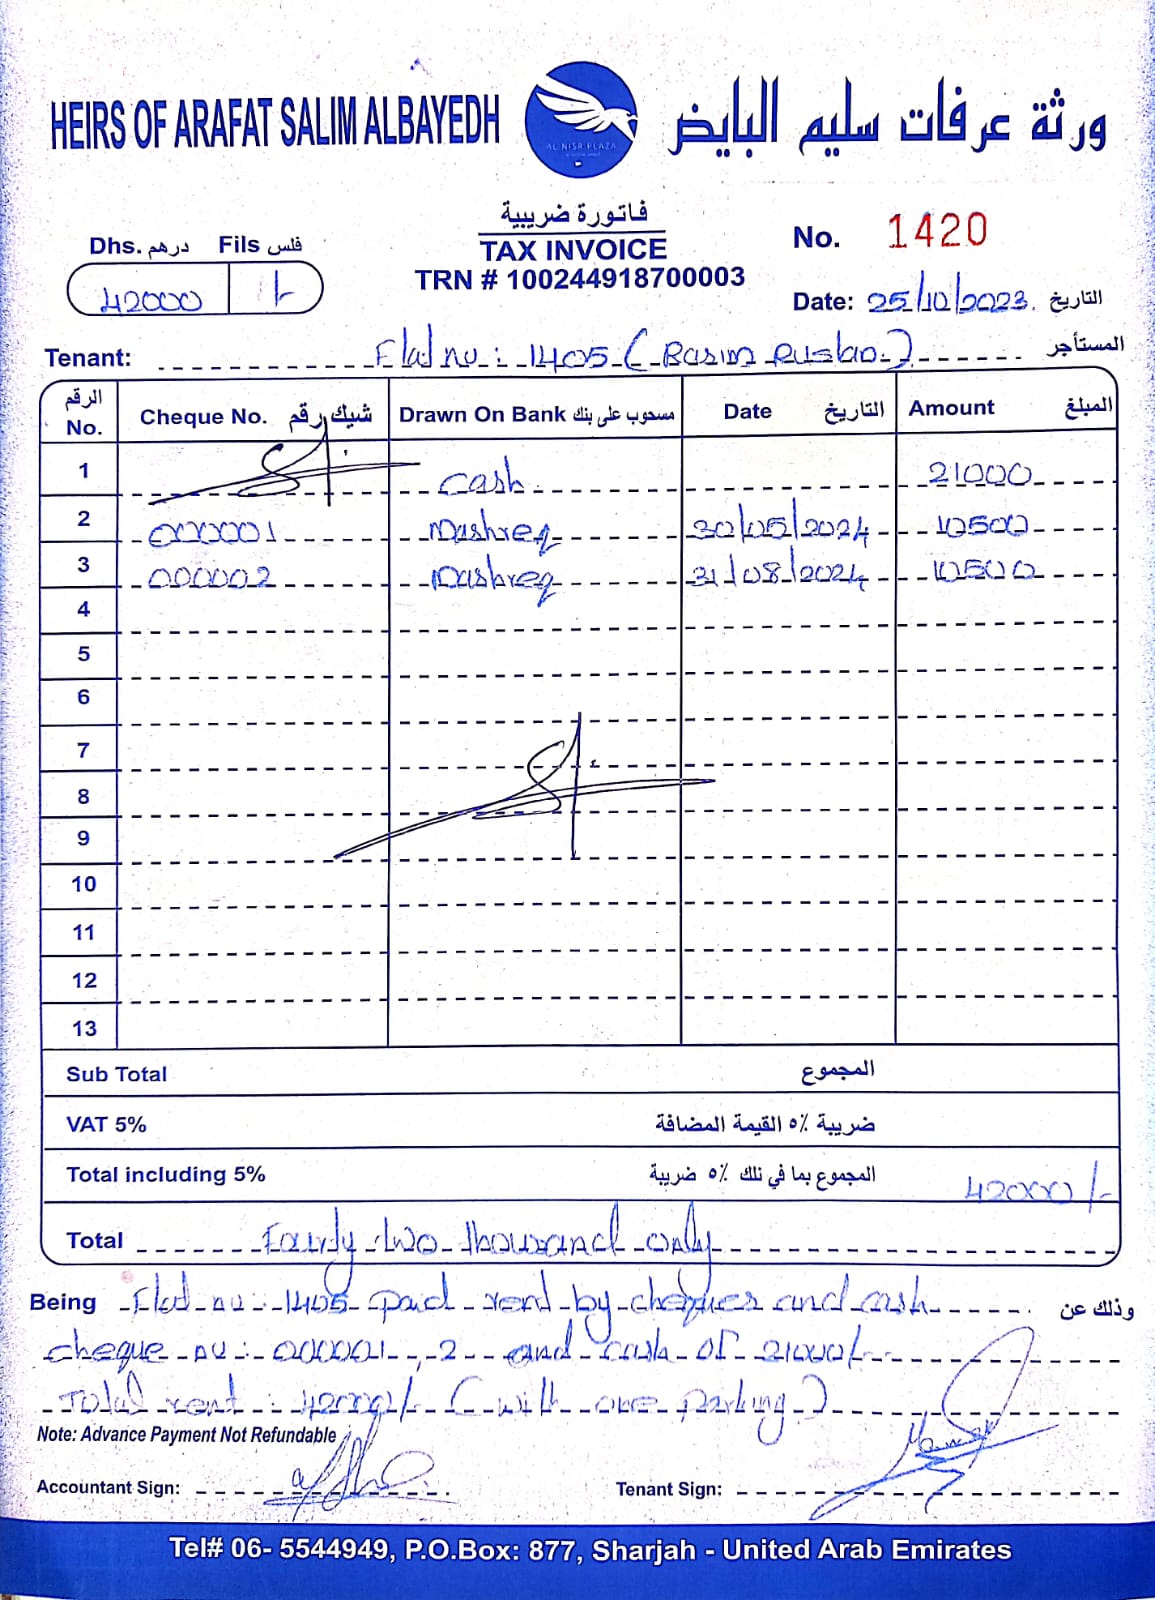 HEIRS OF ARAFAT SALIM ALBAYEDH
ورثة عرفات سليم البايض
AL NISR PLAZA
فاتورة ضريبية
TAX INVOICE
TRN # 100244918700003
Dhs. درهم Fils فلس
42000 /-
No. 1420
Date: 25/10/2023. التاريخ
Tenant: Flat no: 1405 (Basim Ruslan) المستأجر
الرقم No. Cheque No. شيك رقم Drawn On Bank مسحوب على بنك Date التاريخ Amount المبلغ
1 Cash 21000
2 000001 Mashreq 30/05/2024 10500
3 000002 Mashreq 31/08/2024 10500
4
5
6
7
8
9
10
11
12
13
Sub Total المجموع
VAT 5% ضريبة ٥٪ القيمة المضافة
Total including 5% المجموع بما في تلك ٥٪ ضريبة 42000/-
Total Fourty two thousand only
Being Flat no: 1405 paid rent by cheques and cash وذلك عن
cheque no: 000001, 2 and cash of 21000/-
Total rent: 42000/- (with one parking)
Note: Advance Payment Not Refundable
Accountant Sign:
Tenant Sign:
Tel# 06- 5544949, P.O.Box: 877, Sharjah - United Arab Emirates